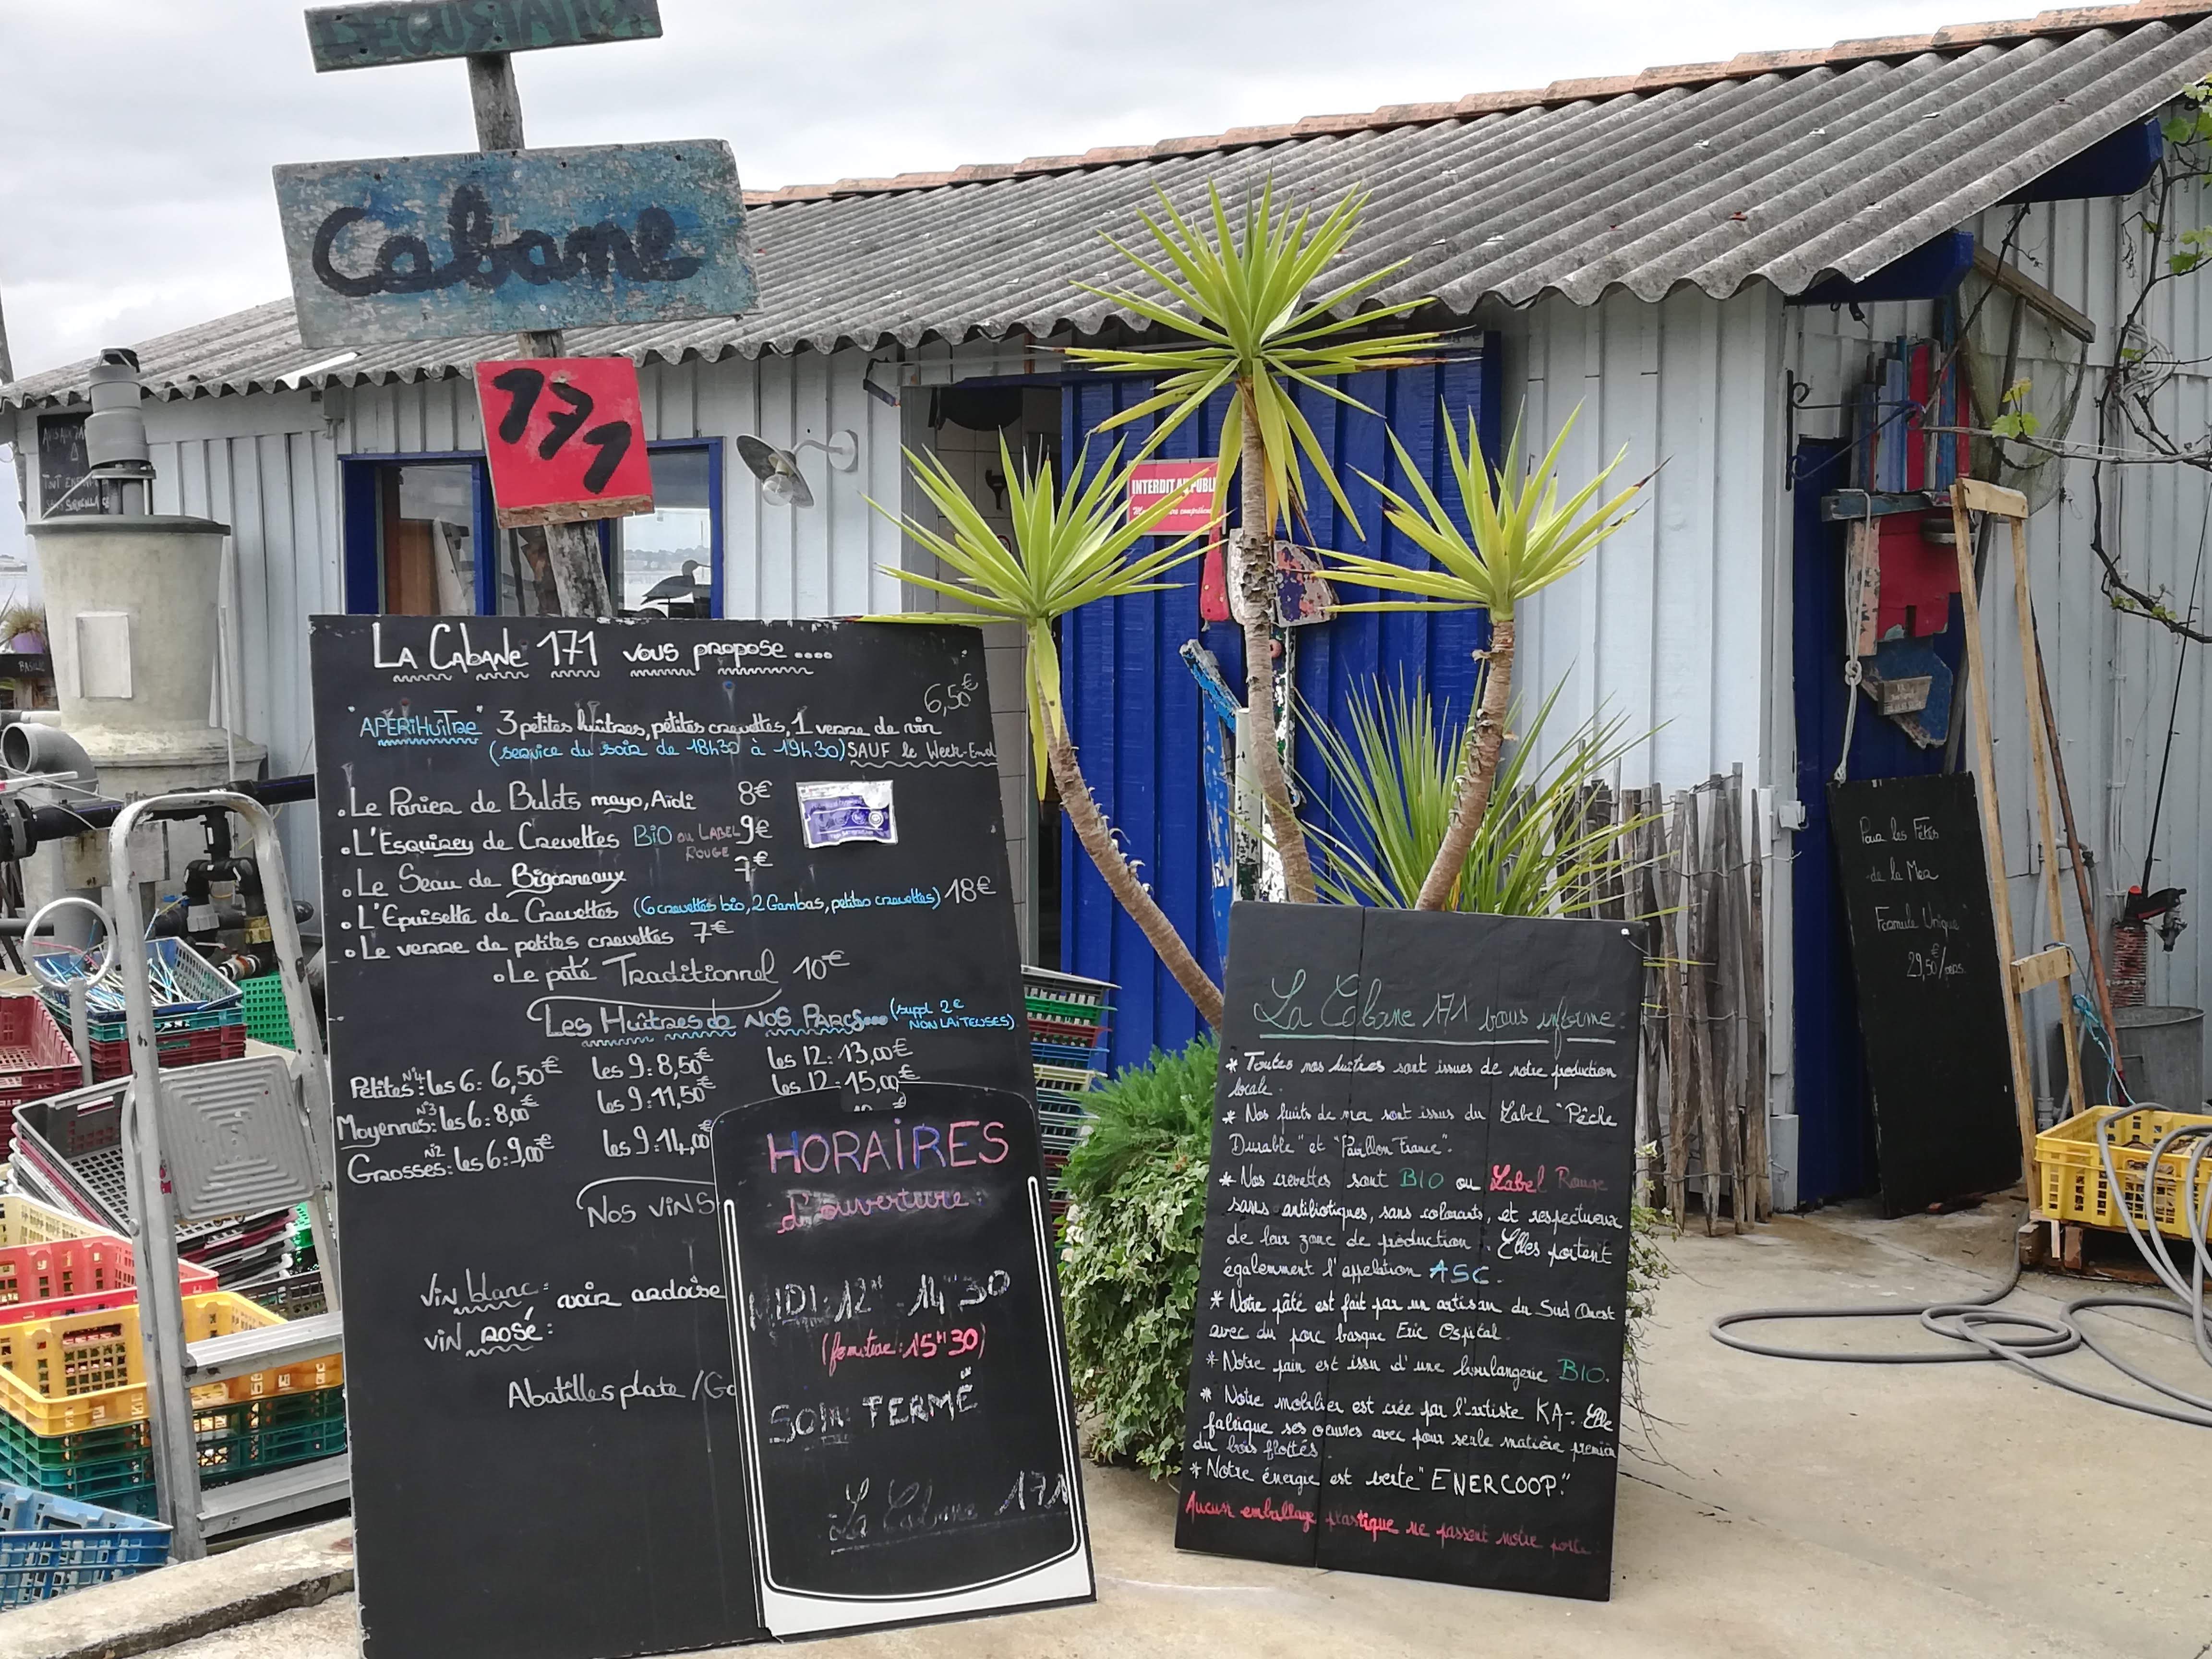 DEGUSTATION
Cabane
171
AUCUN
TOUT ENFANT
SANS SURVEILLANCE
INTERDIT AU PUBLIC
LA CABANE 171 vous propose ....
6,50€
"APERIHUÎTRE" 3 petites huîtres, petites crevettes, 1 verre de vin
(service du soir de 18h30 à 19h30) SAUF le Week-End
• Le Panier de Bulots mayo, Aïoli 8€
• L'Esquirey de Crevettes BIO ou LABEL ROUGE 9€
• Le Seau de Bigorneaux 7€
• L'Epuisette de Crevettes (6 crevettes bio, 2 Gambas, petites crevettes) 18€
• Le verre de petites crevettes 7€
• Le pâté Traditionnel 10€
Les Huîtres de NOS PARCS.... (suppl 2€ NON LAITEUSES)
Petites N°4: les 6: 6,50€ les 9: 8,50€ les 12: 13,00€
Moyennes N°3: les 6: 8,00€ les 9: 11,50€ les 12: 15,00€
Grosses N°2: les 6: 9,00€ les 9: 14,00€
Nos VINS
Vin blanc: voir ardoise
Vin rosé:
Abatilles plate /Ga
HORAIRES
d'ouverture:
MIDI: 12H - 14H30
(fermeture: 15H30)
SOIR: FERMÉ
La Cabane 171
La Cabane 171 vous informe:
* Toutes nos huîtres sont issues de notre production
locale.
* Nos fruits de mer sont issus du Label "Pêche
Durable" et "Pavillon France".
* Nos crevettes sont BIO ou Label Rouge
sans antibiotiques, sans colorants, et respectueux
de leur zone de production. Elles portent
également l'appelation ASC.
* Notre pâté est fait par un artisan du Sud Ouest
avec du porc basque Eric Ospital.
* Notre pain est issu d'une boulangerie BIO.
* Notre mobilier est crée par l'artiste KA-. Elle
fabrique ses oeuvres avec pour seule matière première
du bois flottés.
* Notre énergie est verte "ENERCOOP".
Aucun emballage plastique ne passent notre porte.
Pour les Fêtes
de la Mer
Formule Unique
29,50€/pers.